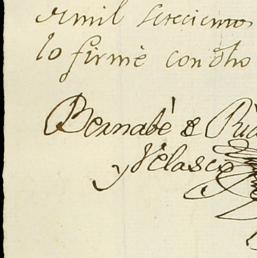 mil setecientos
lo firmè con dho
Bernabè &
y Velasco